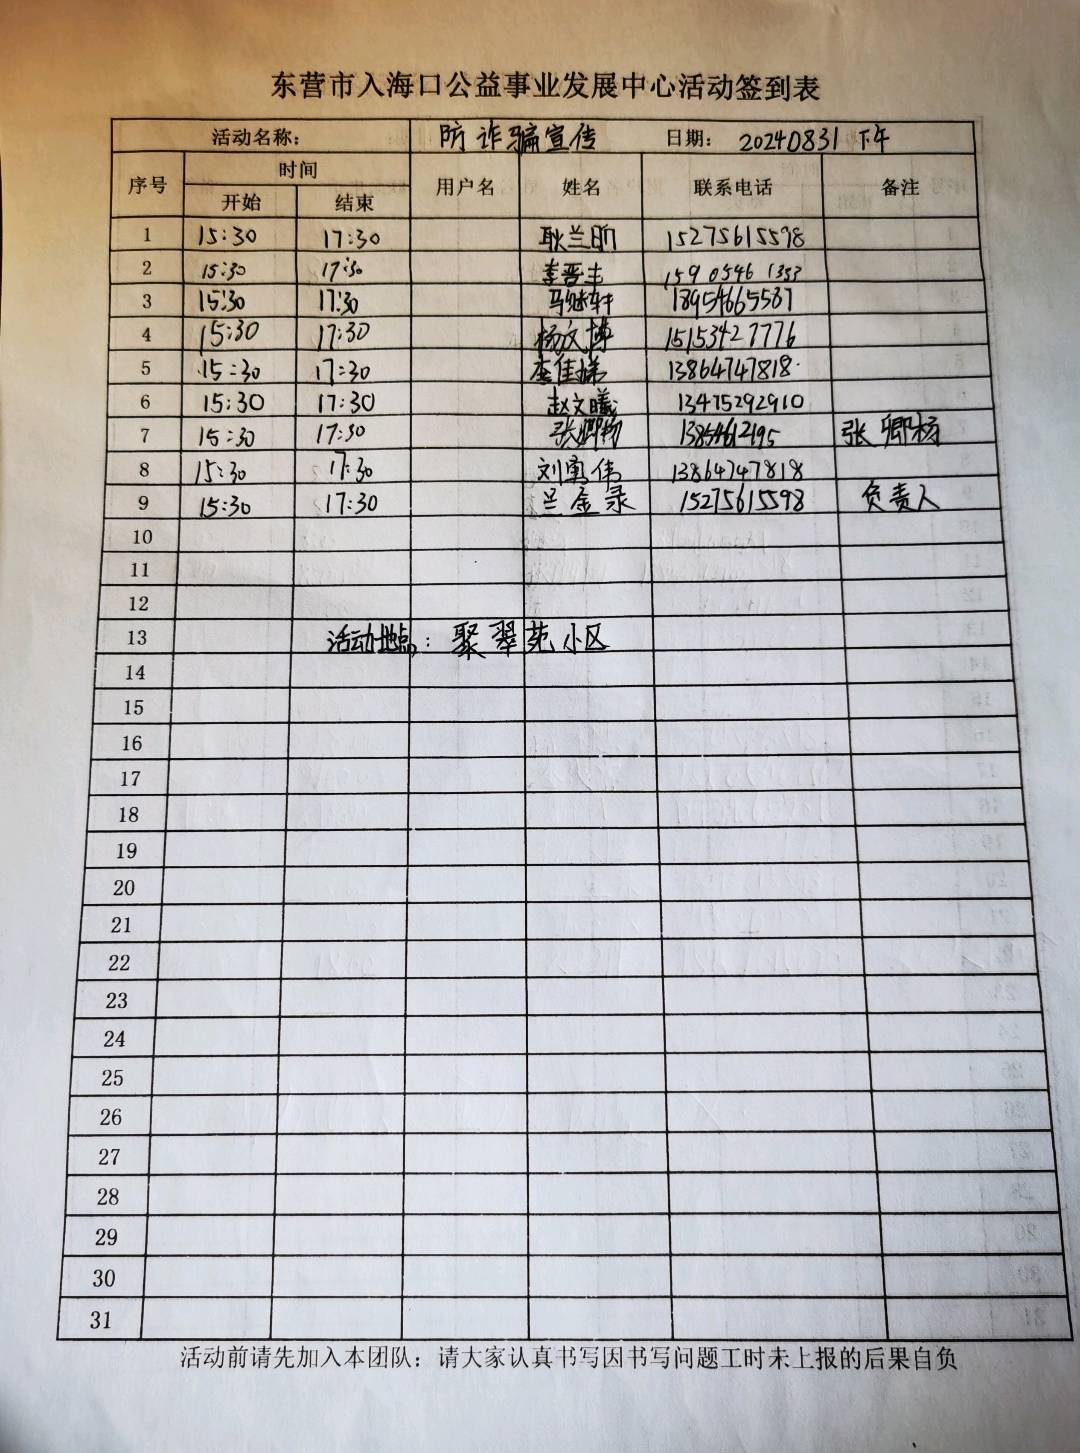 东营市入海口公益事业发展中心活动签到表
活动名称： 防诈骗宣传 日期： 20240831 下午
序号 时间 用户名 姓名 联系电话 备注
开始 结束
1 15:30 17:30 耿兰昕 15275615598
2 15:30 17:30 李晋丰 15905461353
3 15:30 17:30 马继轩 18954665537
4 15:30 17:30 杨文博 15153427776
5 15:30 17:30 李佳娣 13864747818
6 15:30 17:30 赵文曦 13475292910
7 15:30 17:30 张卿杨 张卿杨
8 15:30 17:30 刘寅伟 13864747818
9 15:30 17:30 兰金录 15275615598 负责人
10
11
12
13 活动地点：聚翠苑小区
14
15
16
17
18
19
20
21
22
23
24
25
26
27
28
29
30
31
活动前请先加入本团队：请大家认真书写因书写问题工时未上报的后果自负